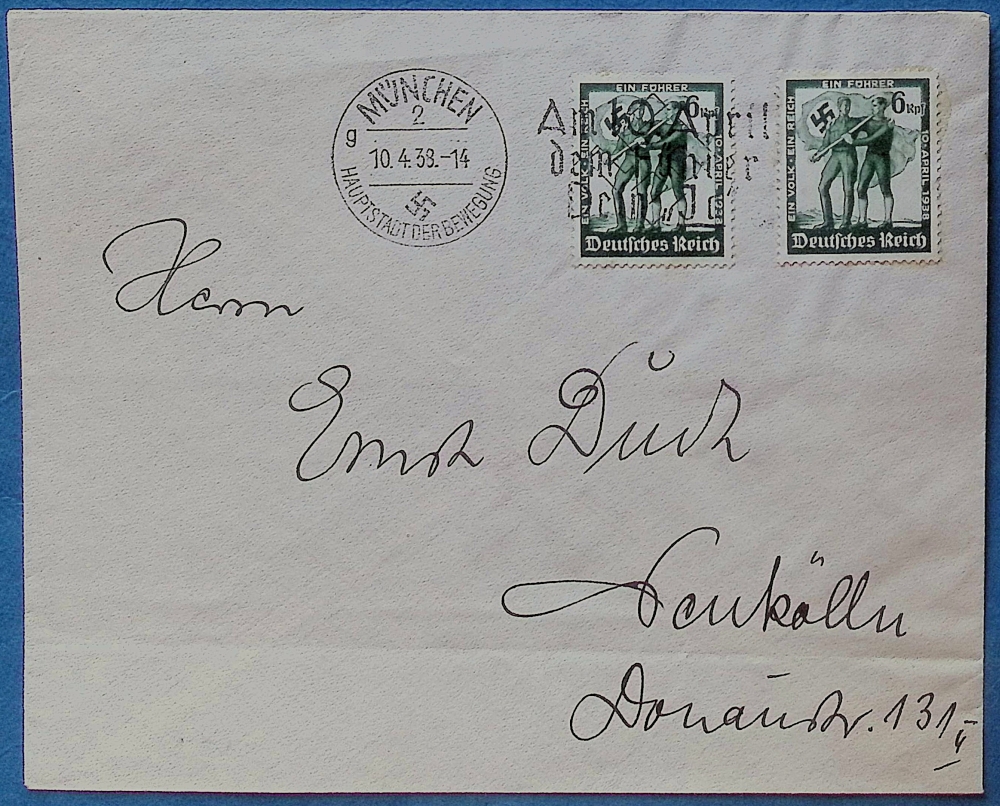 MÜNCHEN
2
g
10.4.38.-14
HAUPTSTADT DER BEWEGUNG
Am 10. April
dem Führer
Dein „Ja“
EIN FÜHRER
6 Rpf
EIN VOLK · EIN REICH
10. APRIL 1938
Deutsches Reich
EIN FÜHRER
6 Rpf
EIN VOLK · EIN REICH
10. APRIL 1938
Deutsches Reich
Herrn
Ernst
Neukölln
Donaustr. 131 II